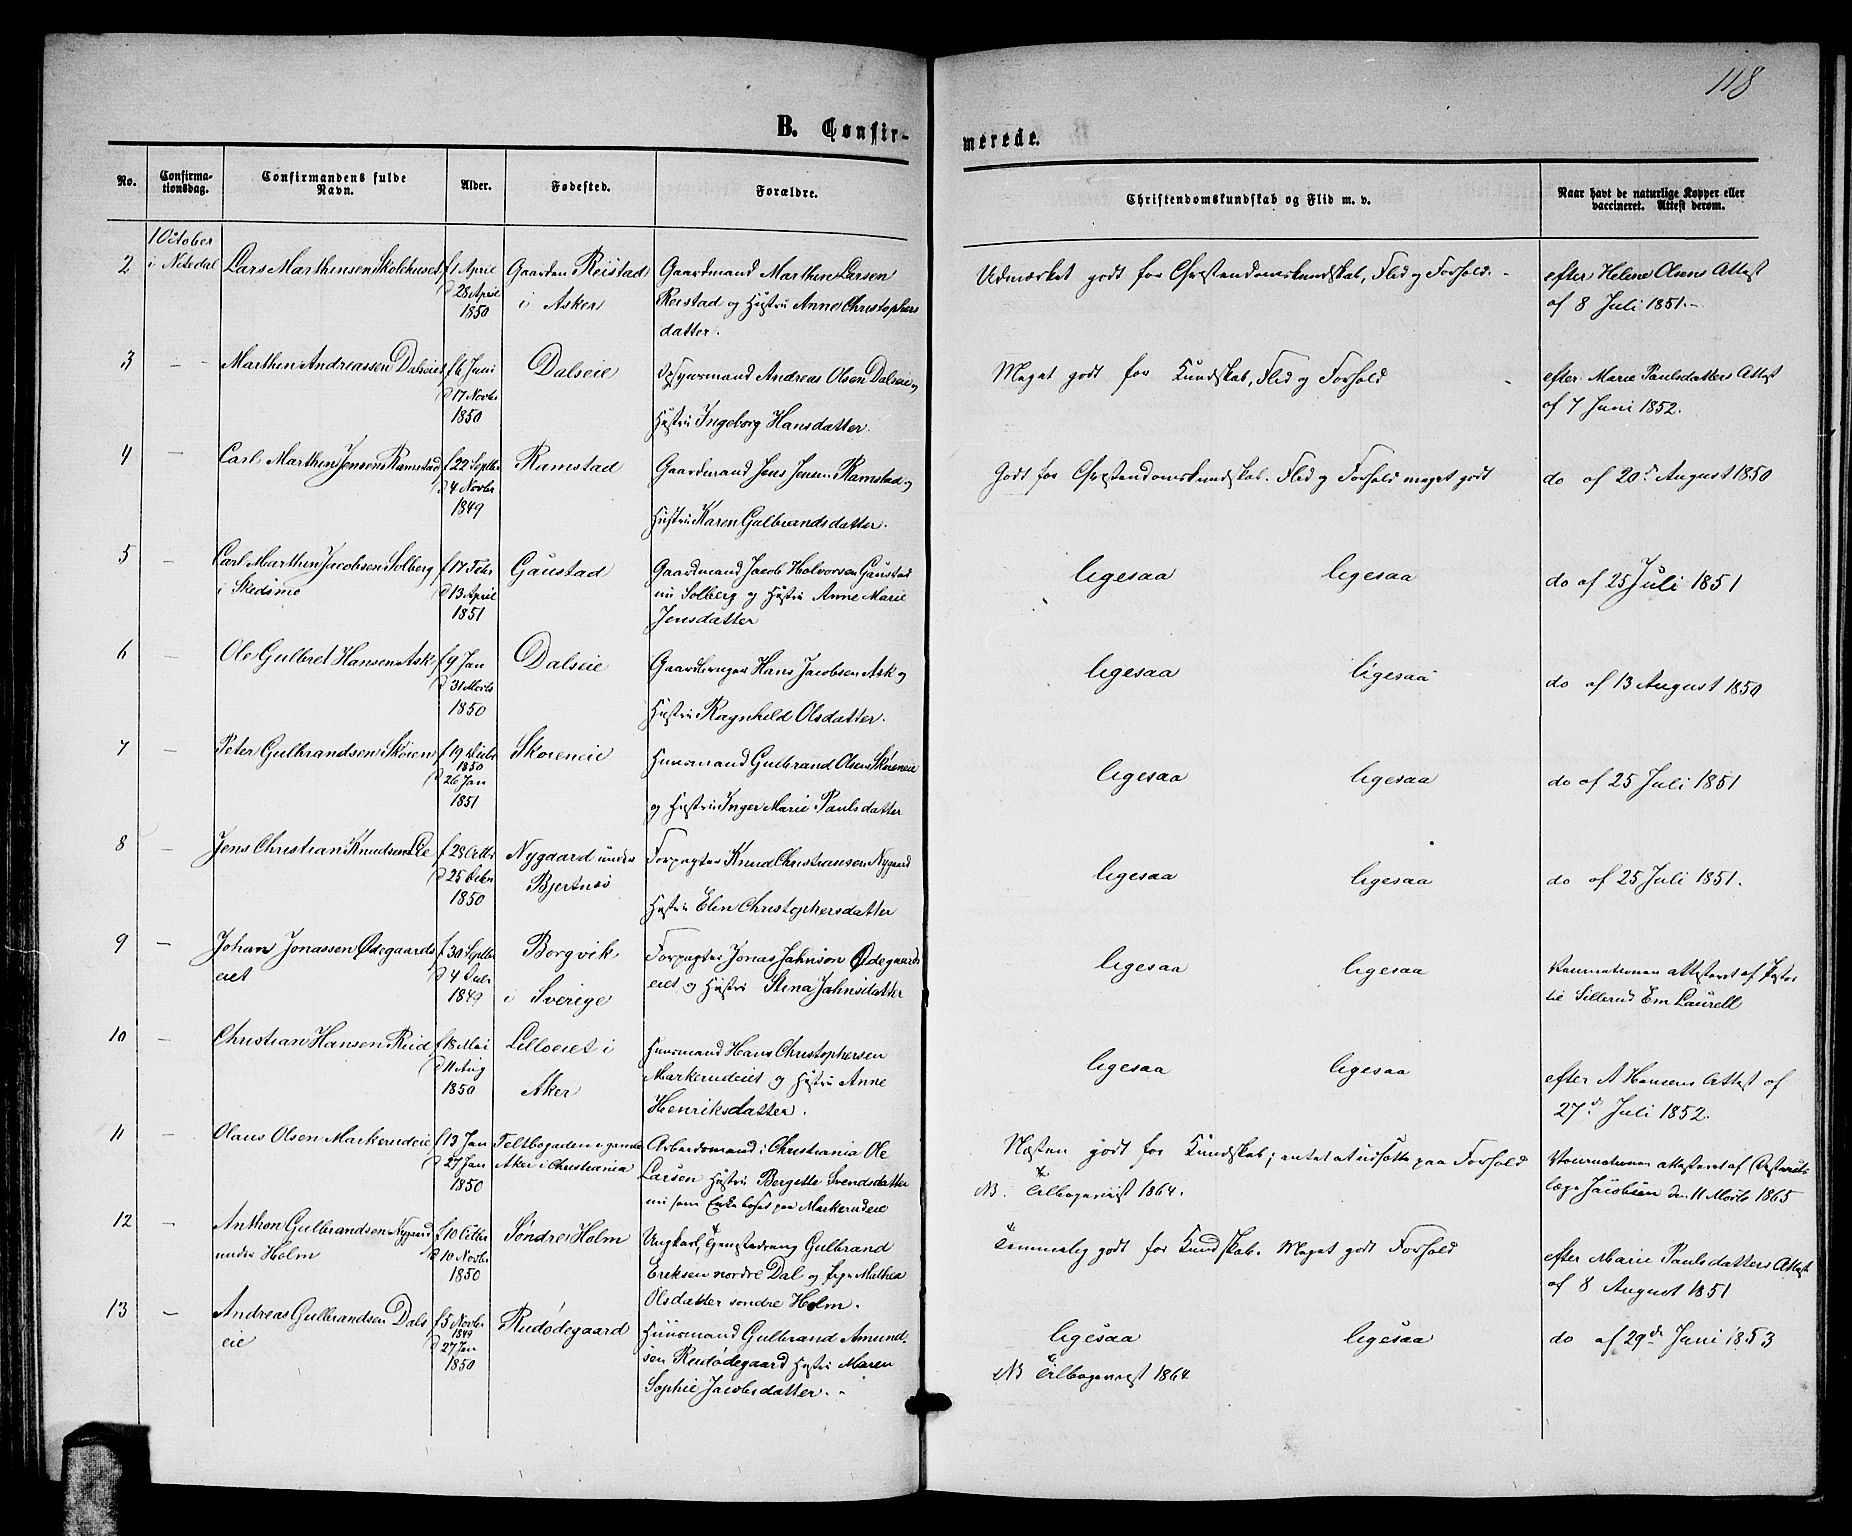 118
B. Confir-
merede.
No.
Confirma-
tionsdag.
Confirmandens fulde
Navn.
Alder.
Fødested.
Forældre.
Christendomskundskab og Flid m. v.
Naar havt de naturlige Kopper eller
vaccineret. Attest derom.
1 October
i Nitedal
2
Lars Marthinsen Skolehuset
f 1 April
d 28 April
1850
Gaarden Reistad
i Asker
Gaardmand Marthin Larsen
Reistad og Hustru Anne Christophers
datter.
Udmærket godt for Christendomskundskab, Flid og Forhold. -
efter Helene Olsens Attest
af 8 Juli 1851. -
3
-
Marthin Andreassen Dalseiet
f 6 Juni
d 17 Novbr
1850
Dalseie
Opsynsmand Andreas Olsen Dalseie og
Hustru Ingeborg Hansdatter.
Meget godt for Kundskab, Flid og Forhold
efter Marie Paulsdatters Attest
af 7 Juni 1852.
4
-
Carl Marthin Jensen Ramstad
f 22 Septbr
d 4 Novbr
1849
Ramstad
Gaardmand Jens Jensen Ramstad og
Hustru Karen Gulbrandsdatter.
Godt for Christendomskundskab. Flid og Forhold meget godt
do af 20de August 1850
5
-
Carl Marthin Jacobsen Solberg
i Skedsmo
f 17 Febr
d 13 April
1851
Gaustad
Gaardmand Jacob Halvorsen Gaustad
nu Solberg og Hustru Anne Marie
Jensdatter
ligesaa ligesaa
do af 25 Juli 1851
6
-
Ole Gulbret Hansen Ask
f 9 Jan
d 31 Marts
1850
Dalseie
Gaardbruger Hans Jacobsen Ask og
Hustru Ragnhild Olsdatter.
ligesaa ligesaa
do af 13 August 1850
7
-
Peter Gulbrandsen Skøien
f 19 Decbr
1850
d 26 Jan
1851
Skøieneie
Huusmand Gulbrand Olsen Skøieneie
og Hustru Inger Marie Paulsdatter
ligesaa ligesaa
do af 25 Juli 1851
8
-
Jens Christian Knudsen Lie
f 28 Octbr
d 25 Decbr
1850
Nygaard under
Bjertnæs
Forpagter Knud Christiansen Nygaard
Hustru Elen Christophersdatter
ligesaa ligesaa
do af 25 Juli 1851.
9
-
Johan Jonassen Ødegaards
eiet
f 30 Septbr
d 4
1849
Borgvik
i Sverige
Forpagter Jonas Jahnson Ødegaards
eiet og Hustru Stina Jahnsdatter
ligesaa ligesaa
Vaccinationen attesteret af
Sillerud Em Laurell
10
-
Christian Hansen Rud
f 18 Mai
d 11 Aug
1850
Lilloeiet i
Aker
Huusmand Hans Christophersen
Markerudeiet og Hustru Anne
Henriksdatter.
ligesaa ligesaa
efter A Hansens Attest af
27de Juli 1852.
11
-
Olaus Olsen Markerudeie
f 13 Jan
d 27 Jan
1850
Teltbogaden i gamle
Aker i Christiania
Arbeidsmand i Christiania Ole
Larsen Hustru Bergitte Svendsdatter
nu som Enke bosat paa Markerudeie
Næsten godt for Kundskab; Intet at udsætte paa Forhold
NB. Tilbageviist 1864.
Vaccinationen attesteret af
læge Jacobsen den 11 Marts 1865
12
-
Anthon Gulbrandsen Nygaard
under Holm
f 10 Octbr
d 10 Novbr
1850
Søndre Holm
Ungkarl, Tjenestedreng Gulbrand
Eriksen nordre Dal og Pige Mathea
Olsdatter søndre Holm.
Temmelig godt for Kundskab. Meget godt Forhold
efter Marie Paulsdatters Attest
af 8 August 1851
13
-
Andreas Gulbrandsen Dals
eie
f 5 Novbr
1849
d 27 Jan
1850
Rudødegaard
Huusmand Gulbrand Amund
sen Rudødegaard Hustru Maren
Sophie Jacobsdatter. -
ligesaa ligesaa
NB Tilbageviist 1864
do af 29de Juni 1853